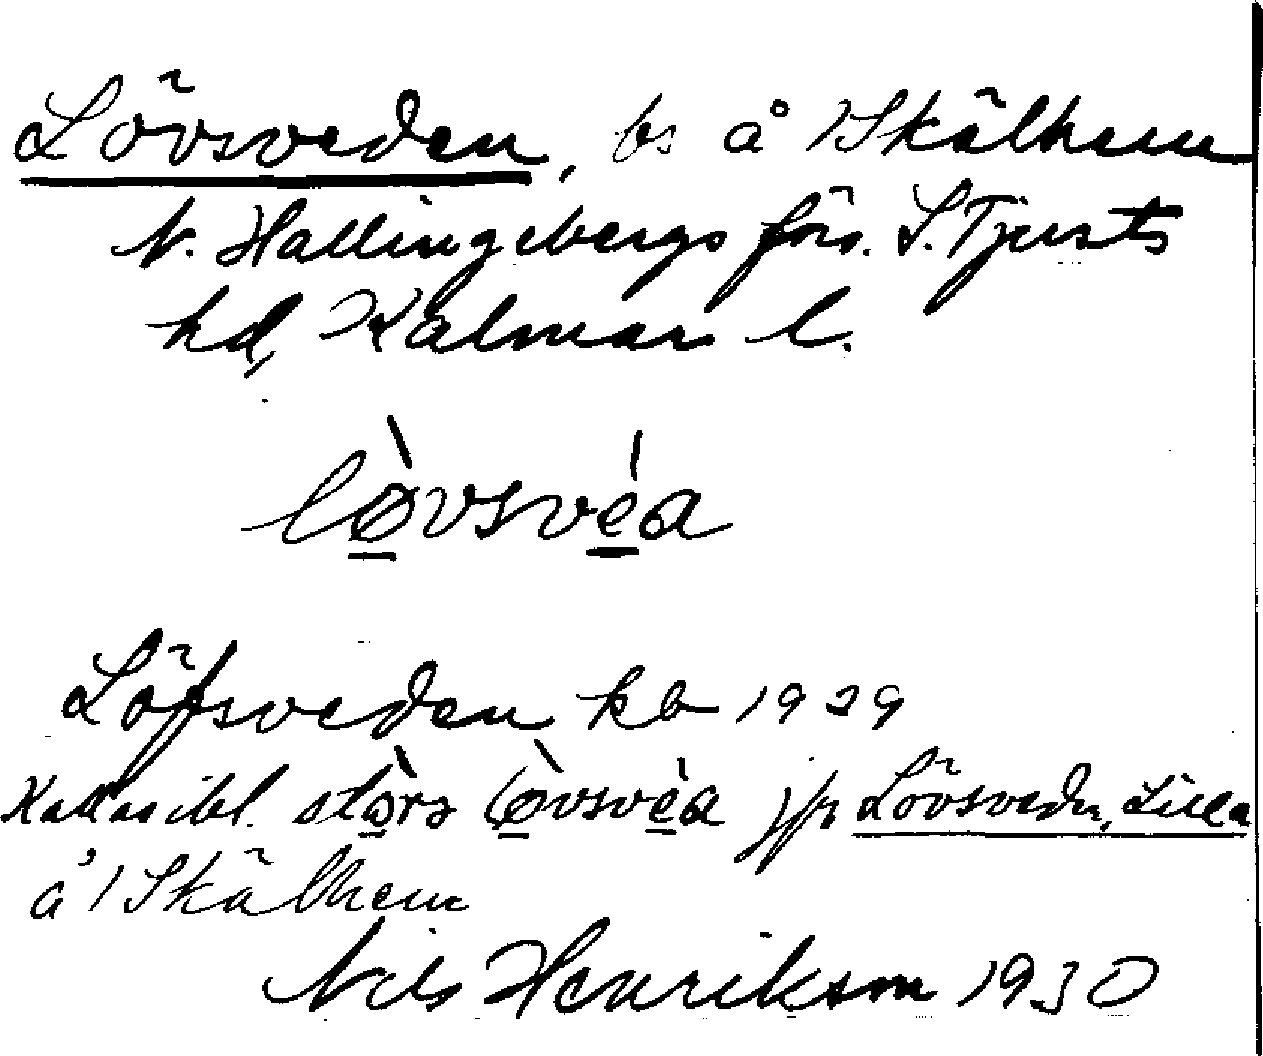 Lövsveden, bs å 1 Skälhem
N. Hallingebergs förs. S. Tjusts
hd, Kalmar l.
lø̀vsvéa
Löfsveden kb 1929
Kallas ibl. stòrs lø̀vsvéa jfr Lövsveden, Lilla
å 1 Skälhem
Nils Henrikson 1930